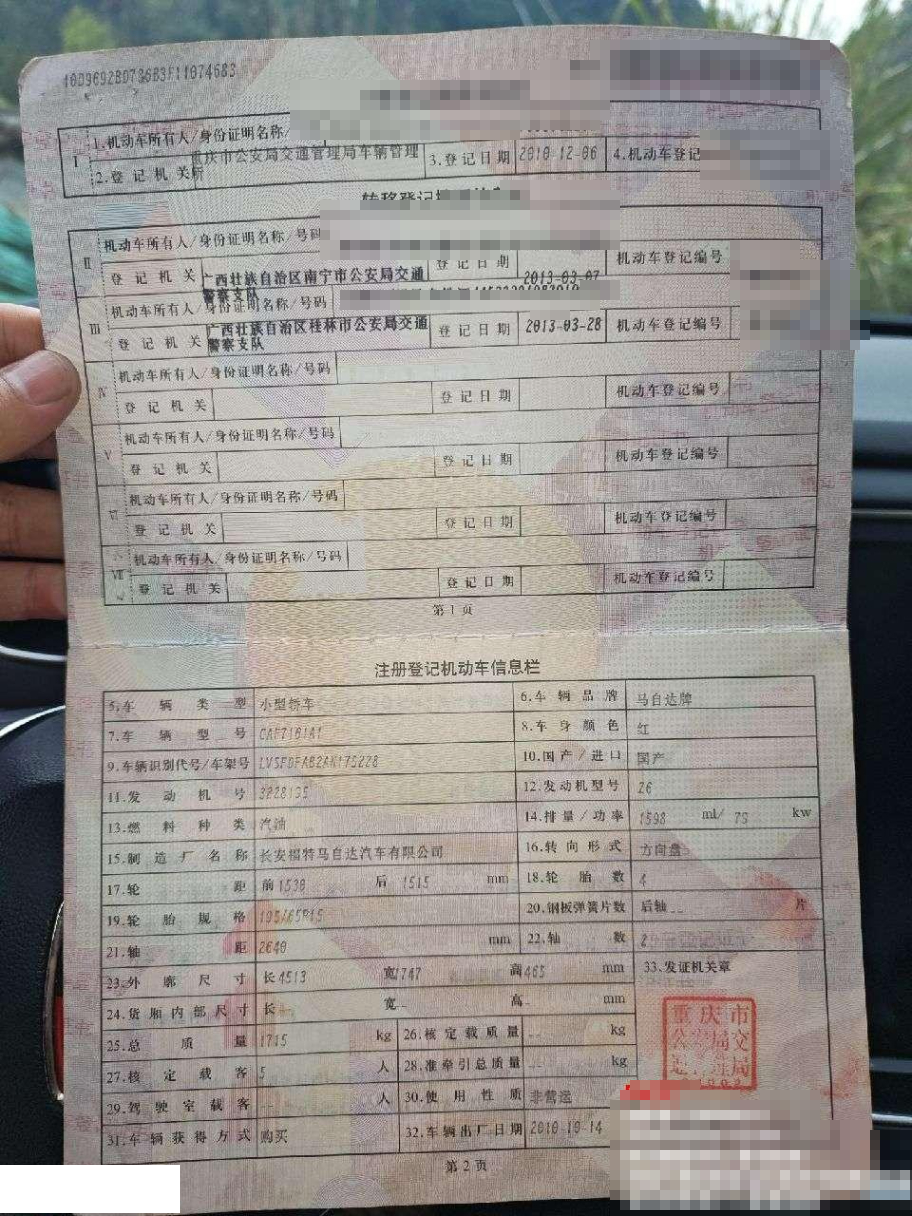 1.机动车所有人/身份证明名称/
I 2.登记机关 重庆市公安局交通管理局车辆管理所 3.登记日期 2010-12-06 4.机动车登记
转移登记
II 机动车所有人/身份证明名称/号码
登记机关 广西壮族自治区南宁市公安局交通警察支队 登记日期 2013-03-07 机动车登记编号
III 机动车所有人/身份证明名称/号码
登记机关 广西壮族自治区桂林市公安局交通警察支队 登记日期 2013-03-28 机动车登记编号
IV 机动车所有人/身份证明名称/号码
登记机关 登记日期 机动车登记编号
V 机动车所有人/身份证明名称/号码
登记机关 登记日期 机动车登记编号
VI 机动车所有人/身份证明名称/号码
登记机关 登记日期 机动车登记编号
VII 机动车所有人/身份证明名称/号码
登记机关 登记日期 机动车登记编号
第1页
注册登记机动车信息栏
5.车辆类型 小型轿车 6.车辆品牌 马自达牌
7.车辆型号 CAF7161A1 8.车身颜色 红
9.车辆识别代号/车架号 10.国产/进口 国产
11.发动机号 12.发动机型号 Z6
13.燃料种类 汽油 14.排量/功率 1598 ml/ 75 kw
15.制造厂名称 长安福特马自达汽车有限公司 16.转向形式 方向盘
17.轮距 前1530 后 1515 mm 18.轮胎数 4
19.轮胎规格 195/65R15 20.钢板弹簧片数 后轴 片
21.轴距 2640 mm 22.轴数 2
23.外廓尺寸 长4513 宽 高 mm 33.发证机关章
24.货厢内部尺寸 长 宽 高 mm
25.总质量 1715 kg 26.核定载质量 kg
27.核定载客 5 人 28.准牵引总质量 kg
29.驾驶室载客 人 30.使用性质 非营运
31.车辆获得方式 购买 32.车辆出厂日期 2010-10-14
重庆市
公安局交
第2页